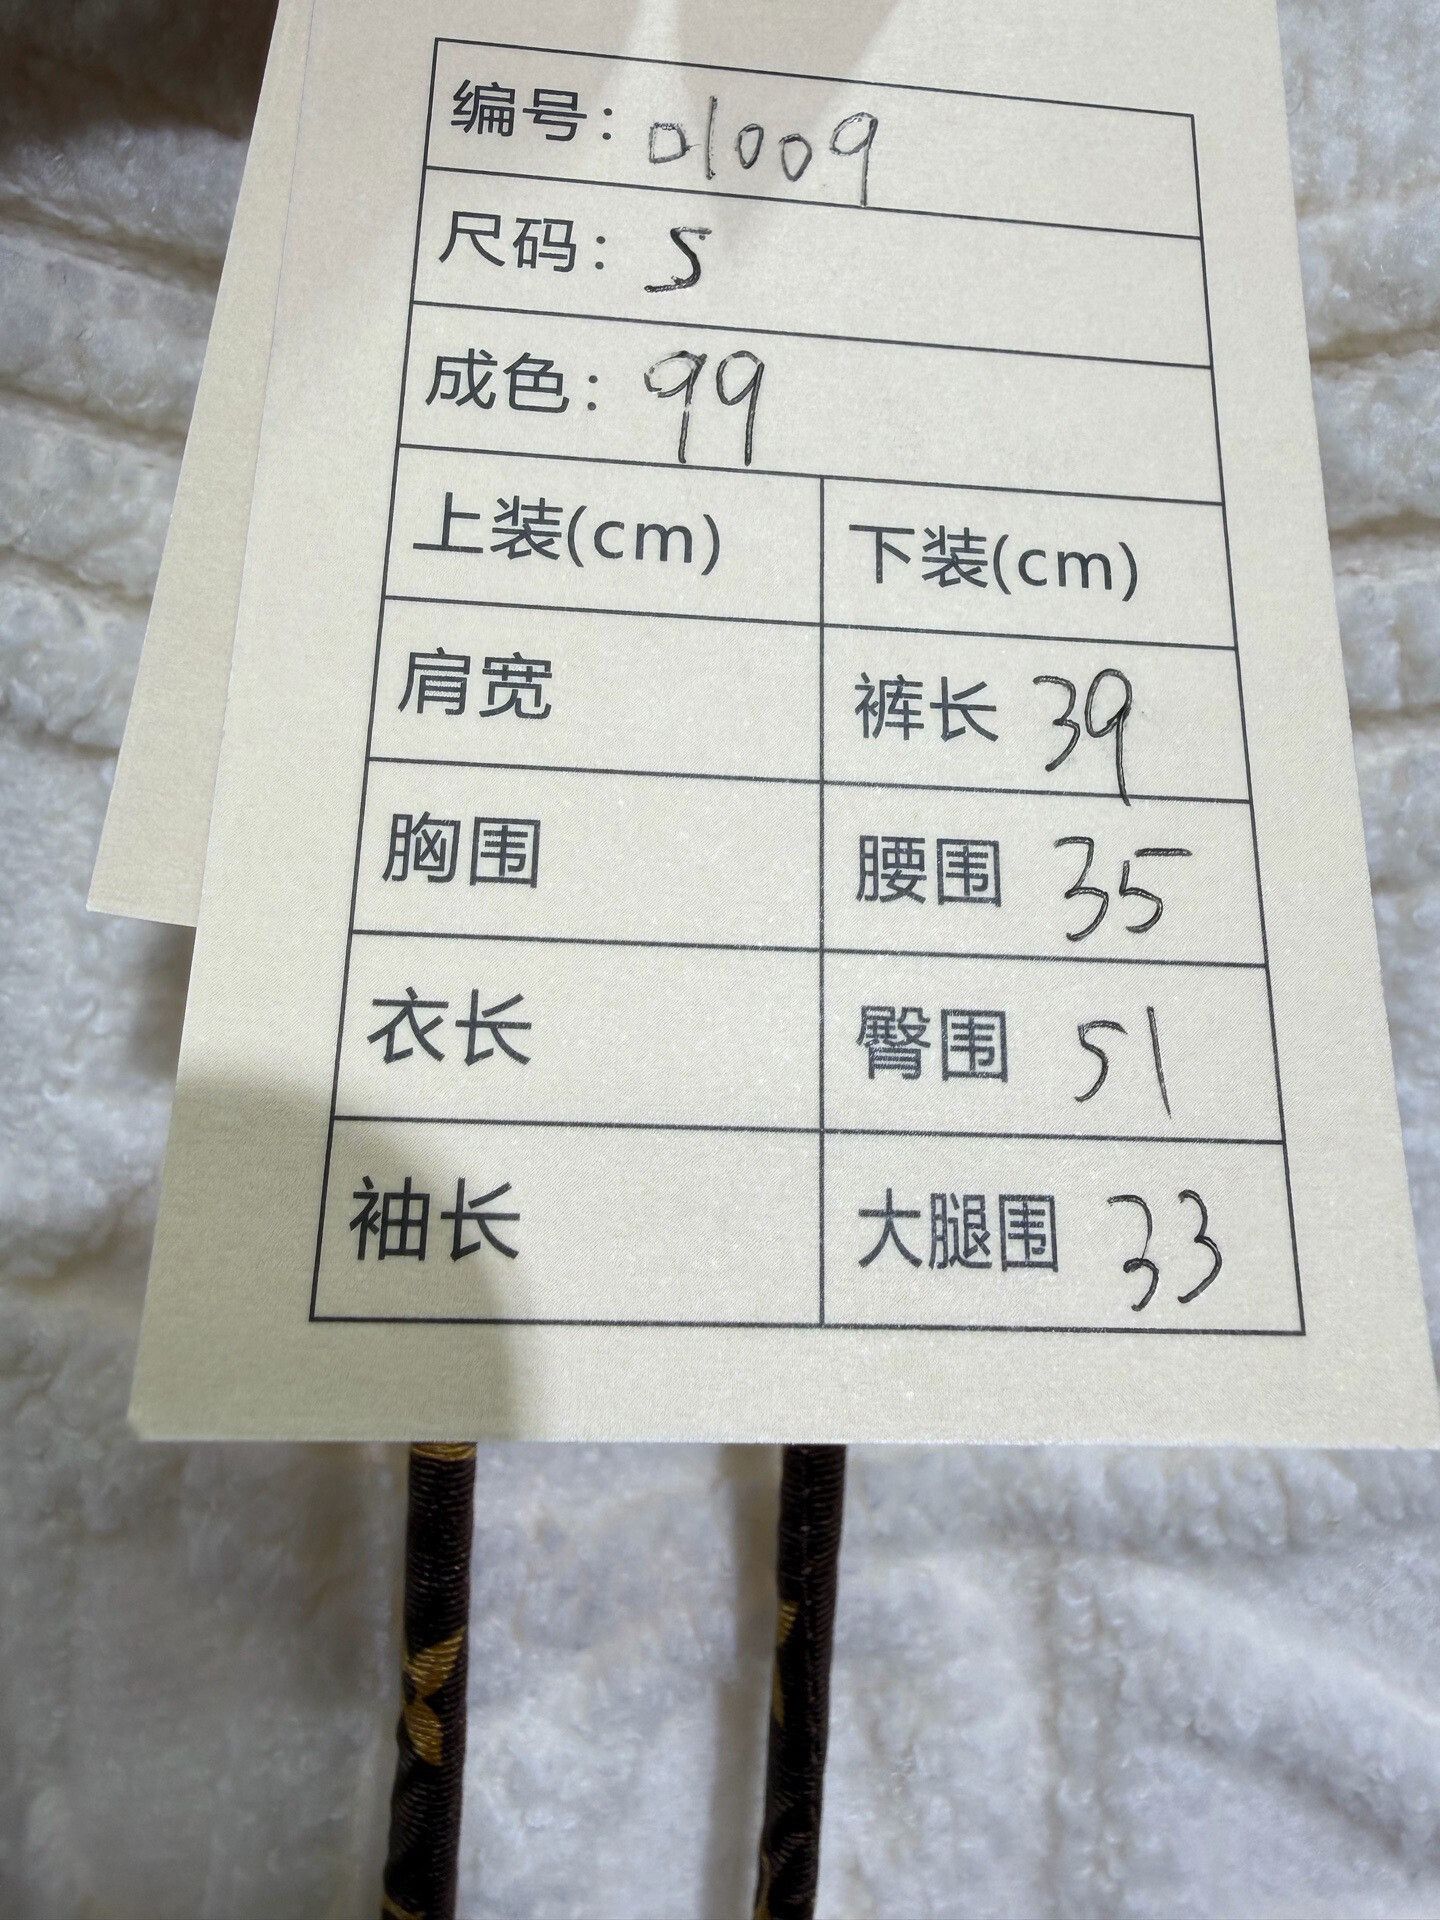 编号：01009
尺码：S
成色：99
上装(cm) 下装(cm)
肩宽 裤长 39
胸围 腰围 35
衣长 臀围 51
袖长 大腿围 33